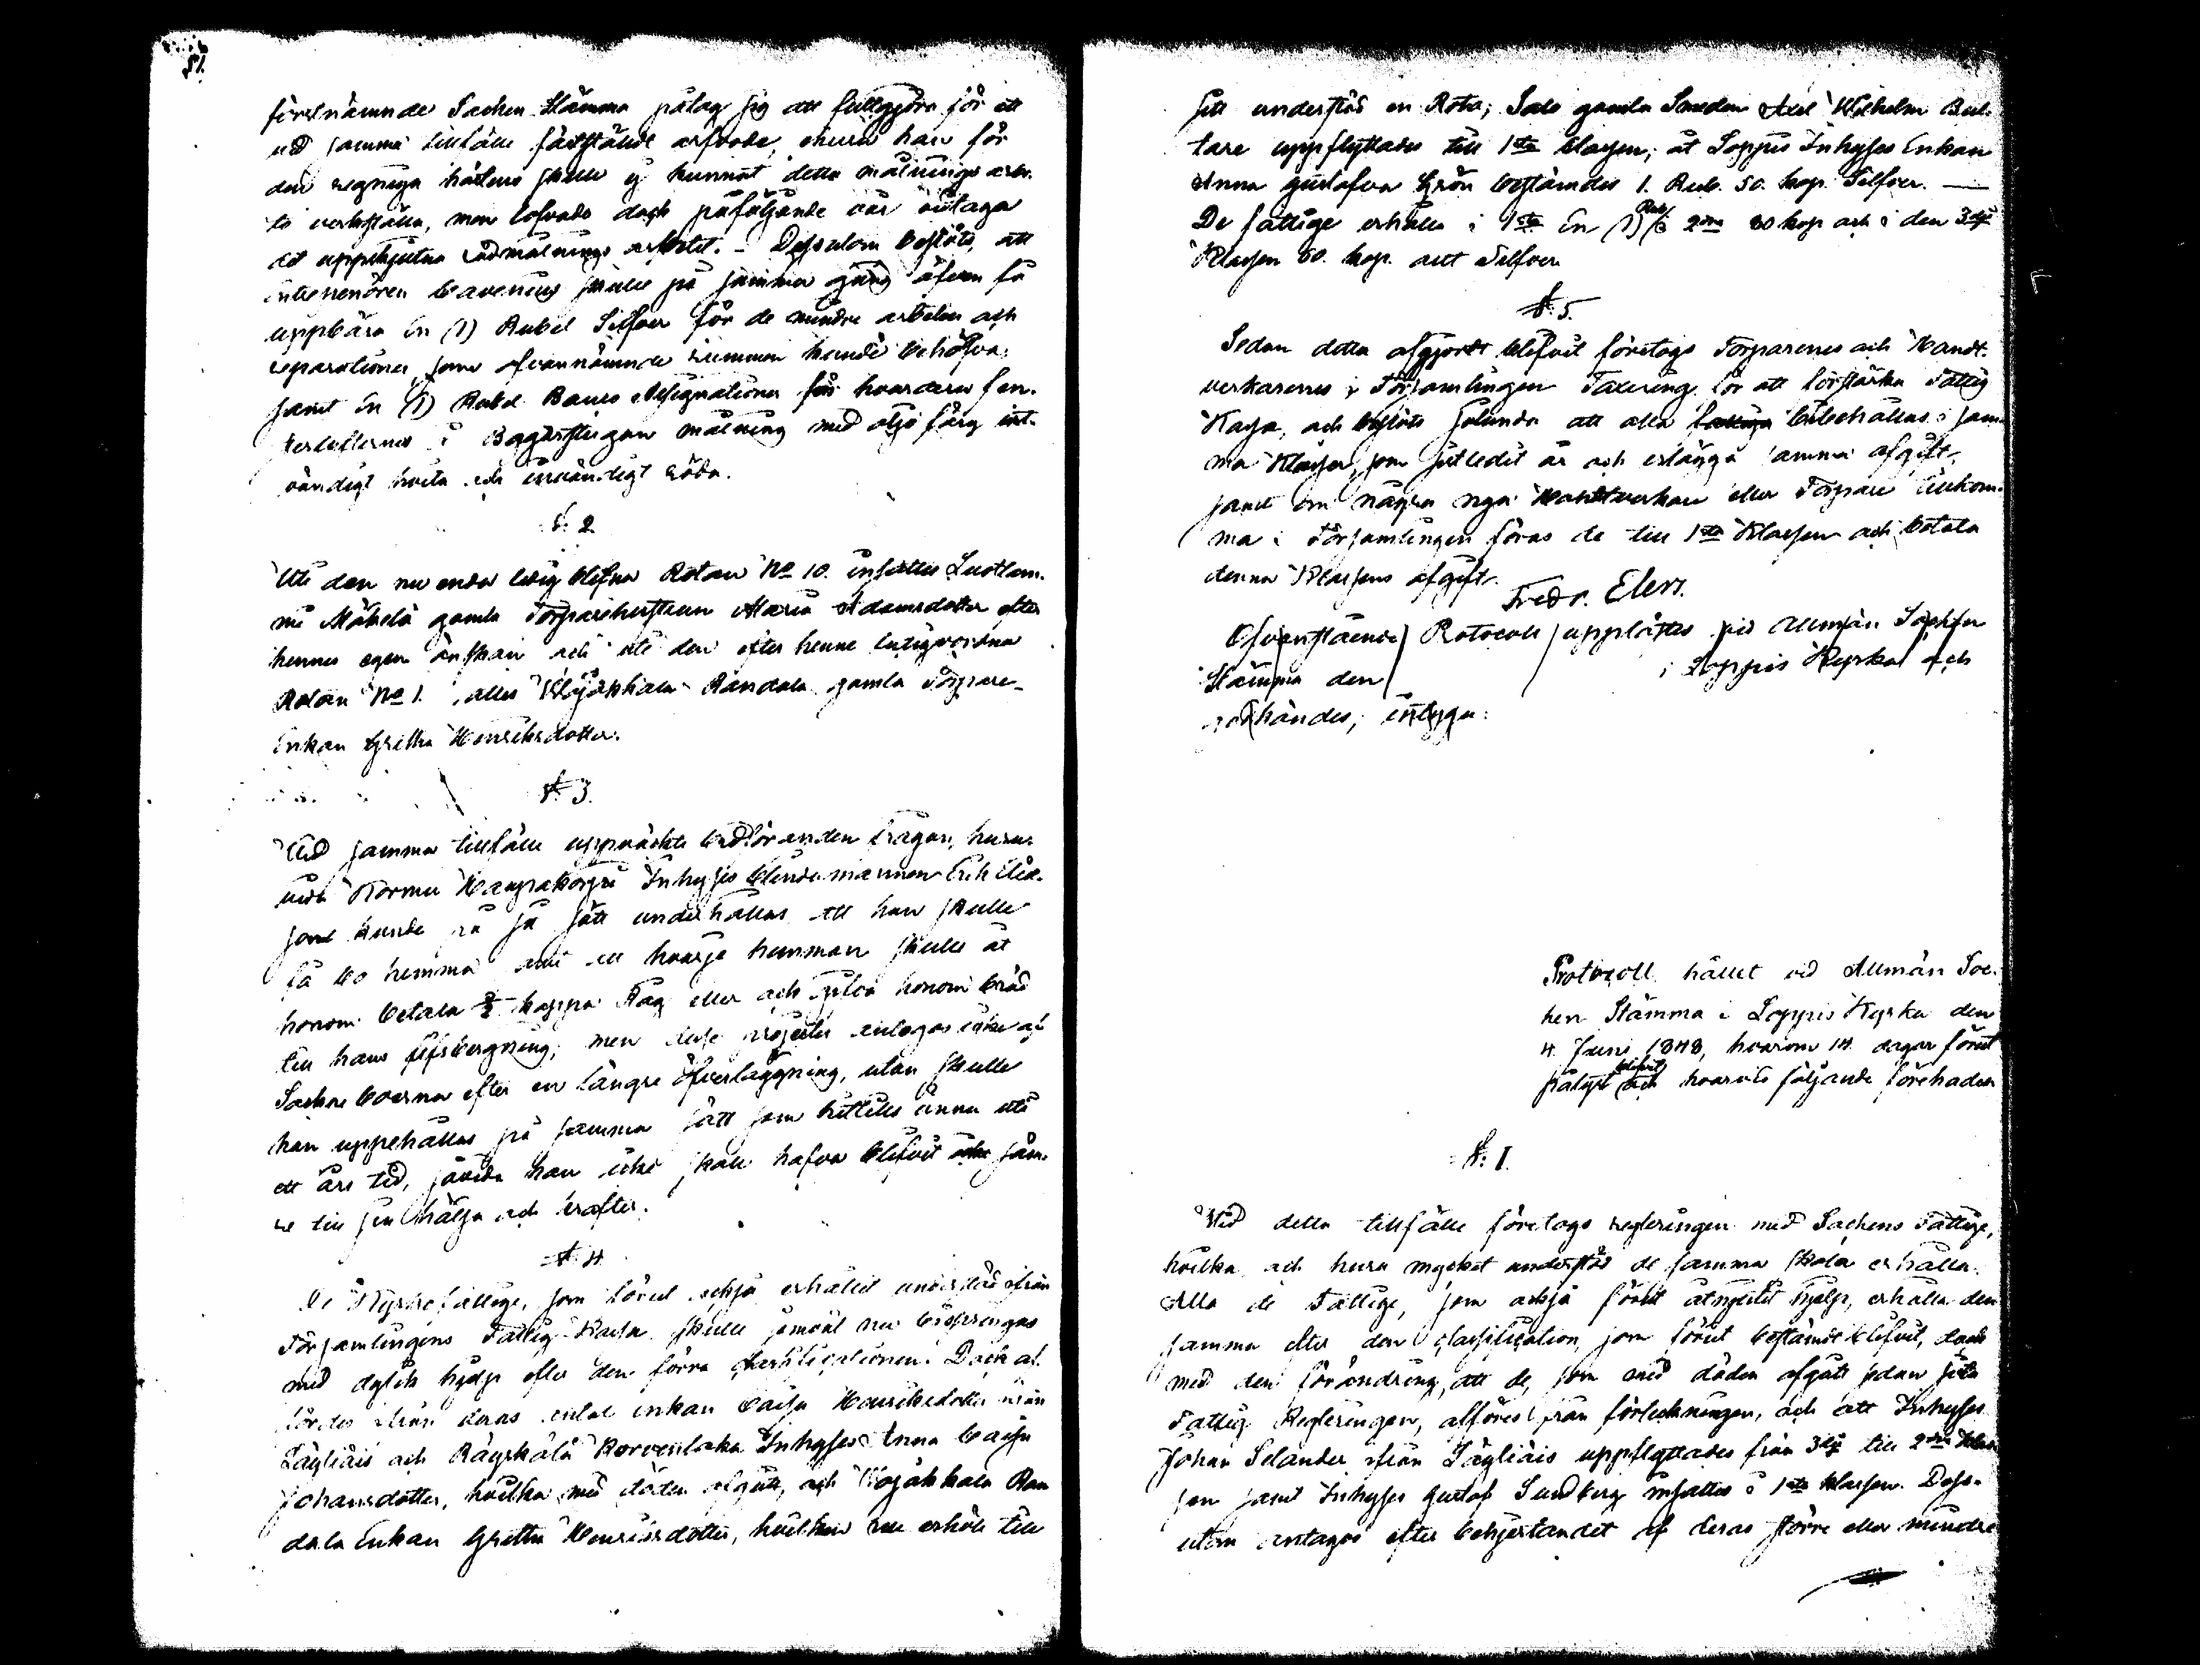 förstnämnde Sochen Stämma påtog sig att fullgjöra för ett
vid samma tillfälle fastställdt arfvode, ehuru han för
den regniga höstens skull ej kunnat detta målnings arbe-
te verkställa, men lofvade dock påföljande vår vidtaga
det uppskjutna rödmålnings arbetet. - Dessutom beslöts, att
Entreprenören Cavenius skulle på samma gång äfven få
uppbära En (1) Rubel Silfver för de mindre arbeten och
reparationer, som ofvannämnde rummen kunde behöfva,
samt En (1) Rubel Banco Assignationer för hvardera fen-
sterlufternes i Bagarstugan målning med oljefärg ut-
vändigt hvita och invändigt röda.
§. 2
Uti den nu enda ledig blefna Rotan No 10. insattes Luotlam-
mi Mäkelä gamla Torparehustrun Maria Adamsdotter efter
hennes egen önskan och uti den efter henne ledigvordna
Rotan No 1. alles Kojäkkala Randala gamla Torpare-
Enkan Gretha Henriksdotter.
§. 3.
Vid samma tillfälle uppväckte Ordföranden frågan, huru-
vida Kormu Inhyses blinda mannen Erik
son kunde på så sätt underhållas att han skulle
få bo hemma samt att hvarje hemman skulle åt
honom betala ½ kappa Råg eller och gifva honom bröd
till hans lifsbergning; men desse projecter antogos icke af
Sockne boerna efter en längre öfverläggning, utan skulle
han uppehållas på samma sätt som hittills ännu uti
ett års tid, såvida han icke skall hafva blifvit säm-
re till sin hälsa och krafter.
§. 4
De Kyrkofattige, som förut också erhållit understöd ifrån
Församlingens Fattig-Kassa skulle jemväl nu bispringas
med dylik hjelp efter den förra classificationen. Dock af-
fördes ifrån deras antal enkan Caisa Henriksdotter ifrån
Läyliäis och Räyskälä Korvenlaka Inhyses Anna Caisa
Johansdotter, hvilka med döden afgått, och Kojäkkala Ran
dala Enkan Gretha Henriksdotter, hvilken nu erhöll till
sitt understöd en Rota; Salo gamla Smeden Axel Wilhelm Bul-
tare uppflyttades till 1sta Classen; åt Loppis Inhyses Enkan
Anna Gustafva Grön bestämdes 1. Rub. 50. kop. Silfver. —
De fattige erhålla i 1sta En (1) Rub. i 2dra 80 kop och i den 3dje
Klassen 60. kop. allt Silfver
§. 5.
Sedan detta afgjordt blifvit företogs Torparenes och Handt-
verkarenes i Församlingen Taxering för att förstärka Fattig
Kassa, och beslöts sålunda att alla bibehållas i sam-
ma Klasser, som sistledit år och erlägga samma afgift,
samt om några nya Handtverkare eller Torpare tillkom-
ma i Församlingen föras de till 1sta Klassen och betala
denna Klassens afgift.
Fredr. Elers.
Ofvanstående Protocoll upplästes vid Allmän Sockne
Stämma den i Loppis Kyrka och
godkändes, intyga:
Protocoll hållet vid Allmän Soc-
ken Stämma i Loppis Kyrka den
4 Juni 1848, hvarom 14 dagar förut
blifvit
pålyst och hvarvid följande förehades
§. 1.
Vid detta tillfälle företogs regleringen med Sockens Fattige,
hvilka och huru mycket understöd de samma skola erhålla.
Alla de Fattige, som också förut åtnjutit hjelp, erhålla den
samma efter den classification, som förut bestämd blifvit, dock
med den förändring, att de, som med döden afgått sedan sista
Fattig Regleringen, afföres från förteckningen, och att Inhyses
Johan Selander ifrån Läyliäis uppflyttades från 3dje till 2dra Klas
sen samt Inhyses Gustaf Sundberg insattes i 1sta Klassen. Dess-
utom antogos efter behjertandet af deras större eller mindre